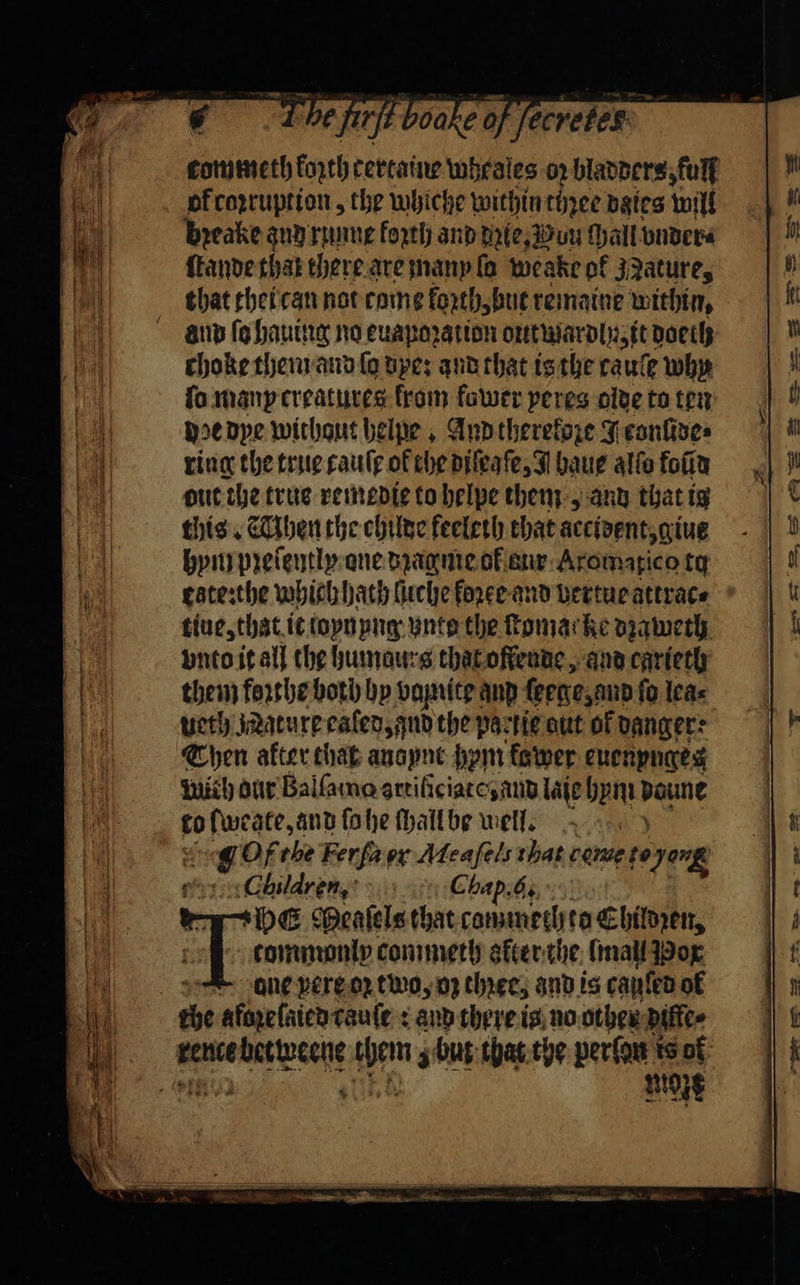 6 The first booke of secretes
commeth forth certaine wheales or bladders, full
of corruption, the whiche within three daies will
breake and runne forth and drie, You shall vnders
stande that there are many so weake of Nature,
that thei can not come forth, but remaine within,
and so hauing no euaporation outwardly, it doeth
choke them and so dye: and that is the cause why
so many creatures from fower yeres olde to ten
doe dye without helpe, And therefore I conside=
ring the true cause of the disease, I haue also foūd
out the true remedie to helpe them, and that is
this. When the childe feeleth that accident, giue
hym presently one dragme of our Aromatico to
eate: the which hath suche force and vertue attrac=
tiue, that it ioynyng vnto the stomacke draweth
vnto it all the humours that offende, and carieth
them forthe both by vomite and seege, and so lea=
ueth Nature eased, and the partie out of danger:
Then after that anoynt hym fower euenynges
with our Balsamo artificiato, and laie hym doune
to sweate, and so he shall be well.
¶ Of the Fersa or Measels that come to yong
Children, Chap. 6.
THE Measels that commeth to Children,
commonly commeth after the small Pox
one yere or two, or three, and is caused of
the aforesaied cause: and there is no other diffe=
rence betweene them, but that the person is of
more